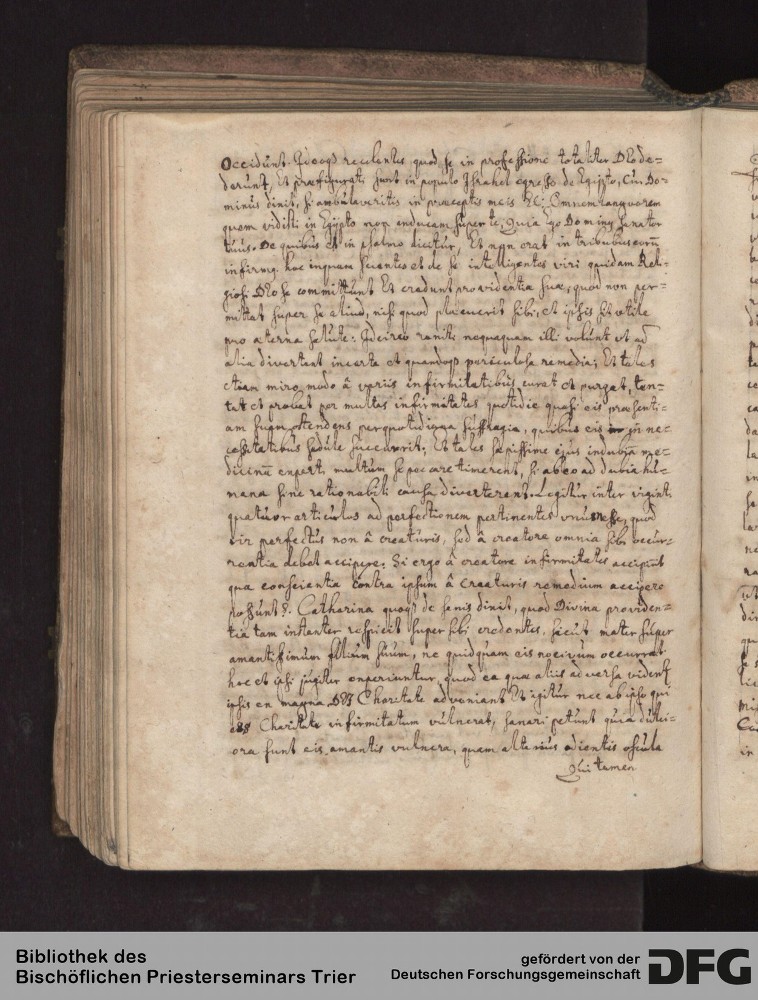 Occidunt. Ideoq3 recolentes quod se in professione totaliter Deo de=
derunt, Et praefigurati sunt in populo Israhel egresso de Egipto, Cui Do=
minus dixit, si ambulaveritis in praeceptis meis Etc: Omnem languorem
quem vidisti in Egypto non inducam super te, Quia Ego Dominus sanator
tuus. De quibus et in psalmo dicitur, Et non erat in tribubus eorum
infirmus. hoc inquam scientes et de se intelligentes viri quidam Reli=
giosi Deo se committunt Et credunt providentia suae, quod non per=
mittat super se aliud, nisi quod placuerit sibi, et ipsis sit utile
pro aeterna salute. Idcirco nequaquam illi volunt ut ad
alia divertant incerta et quandoq3 periculosa remedia; Et tales
etiam miro modo â variis infirmitatibus curat et purgat, ten=
tat et probat per multas infirmitates quotidie quasi eis praesenti=
am suam ostendens per quotidiana suffragia, quibus eis in ne=
cessitatibus sedule succurrit. Et tales saepissime ejus indubiam me=
dicinam experti multum se peccare timerent, si ab eo ad dubia hu=
mana sine rationabili causa diverterent. Legitur inter viginti
quatuor articulos ad perfectionem pertinentes unus esse, quod
vir perfectus non â creaturis, sed â creatore omnia sibi occur=
rentia debet accipere. Si ergo â creatore infirmitates accipiunt
qua conscientia contra ipsum â creaturis remedium accipere
possunt?. Catharina quoq3 de senis dixit, quod Divina providen=
tia tam instanter respicit super sibi credentes, sicut mater super
amantissimum filium suum, ne quidquam eis nocivum occurrat.
hoc et ipsi jugiter experiuntur, quod ea quae aliis adversa videntur
ipsis ex magna Dei Charitate adveniant Ut igitur nec ab ipso qui
eos Charitate infirmitatum vulnerat, sanari petunt quia dulci=
ora sunt eis amantis vulnera, quam alterius odientis oscula
Qui tamen
Bibliothek des
Bischöflichen Priesterseminars Trier
gefördert von der
Deutschen Forschungsgemeinschaft
DFG